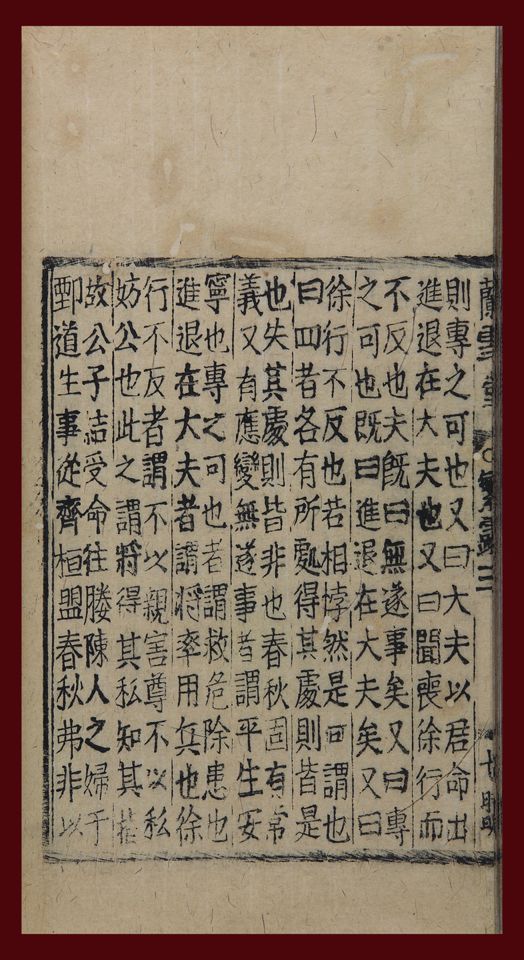 蘭雪堂 繁露三
則專之可也又曰大夫以君命出
進退在大夫也又曰聞喪徐行而
不反也夫既曰無遂事矣又曰專
之可也既曰進退在大夫矣又曰
徐行不反也若相悖然是何謂也
曰四者各有所處得其處則皆是
也失其處則皆非也春秋固有常
義又有應變無遂事者謂平生安
寧也專之可也者謂救危除患也
進退在大夫者謂將率用兵也徐
行不反者謂不以親害尊不以私
妨公也此之謂將得其私知其指
故公子結受命往媵陳人之婦于
鄄道生事從齊桓盟春秋弗非以